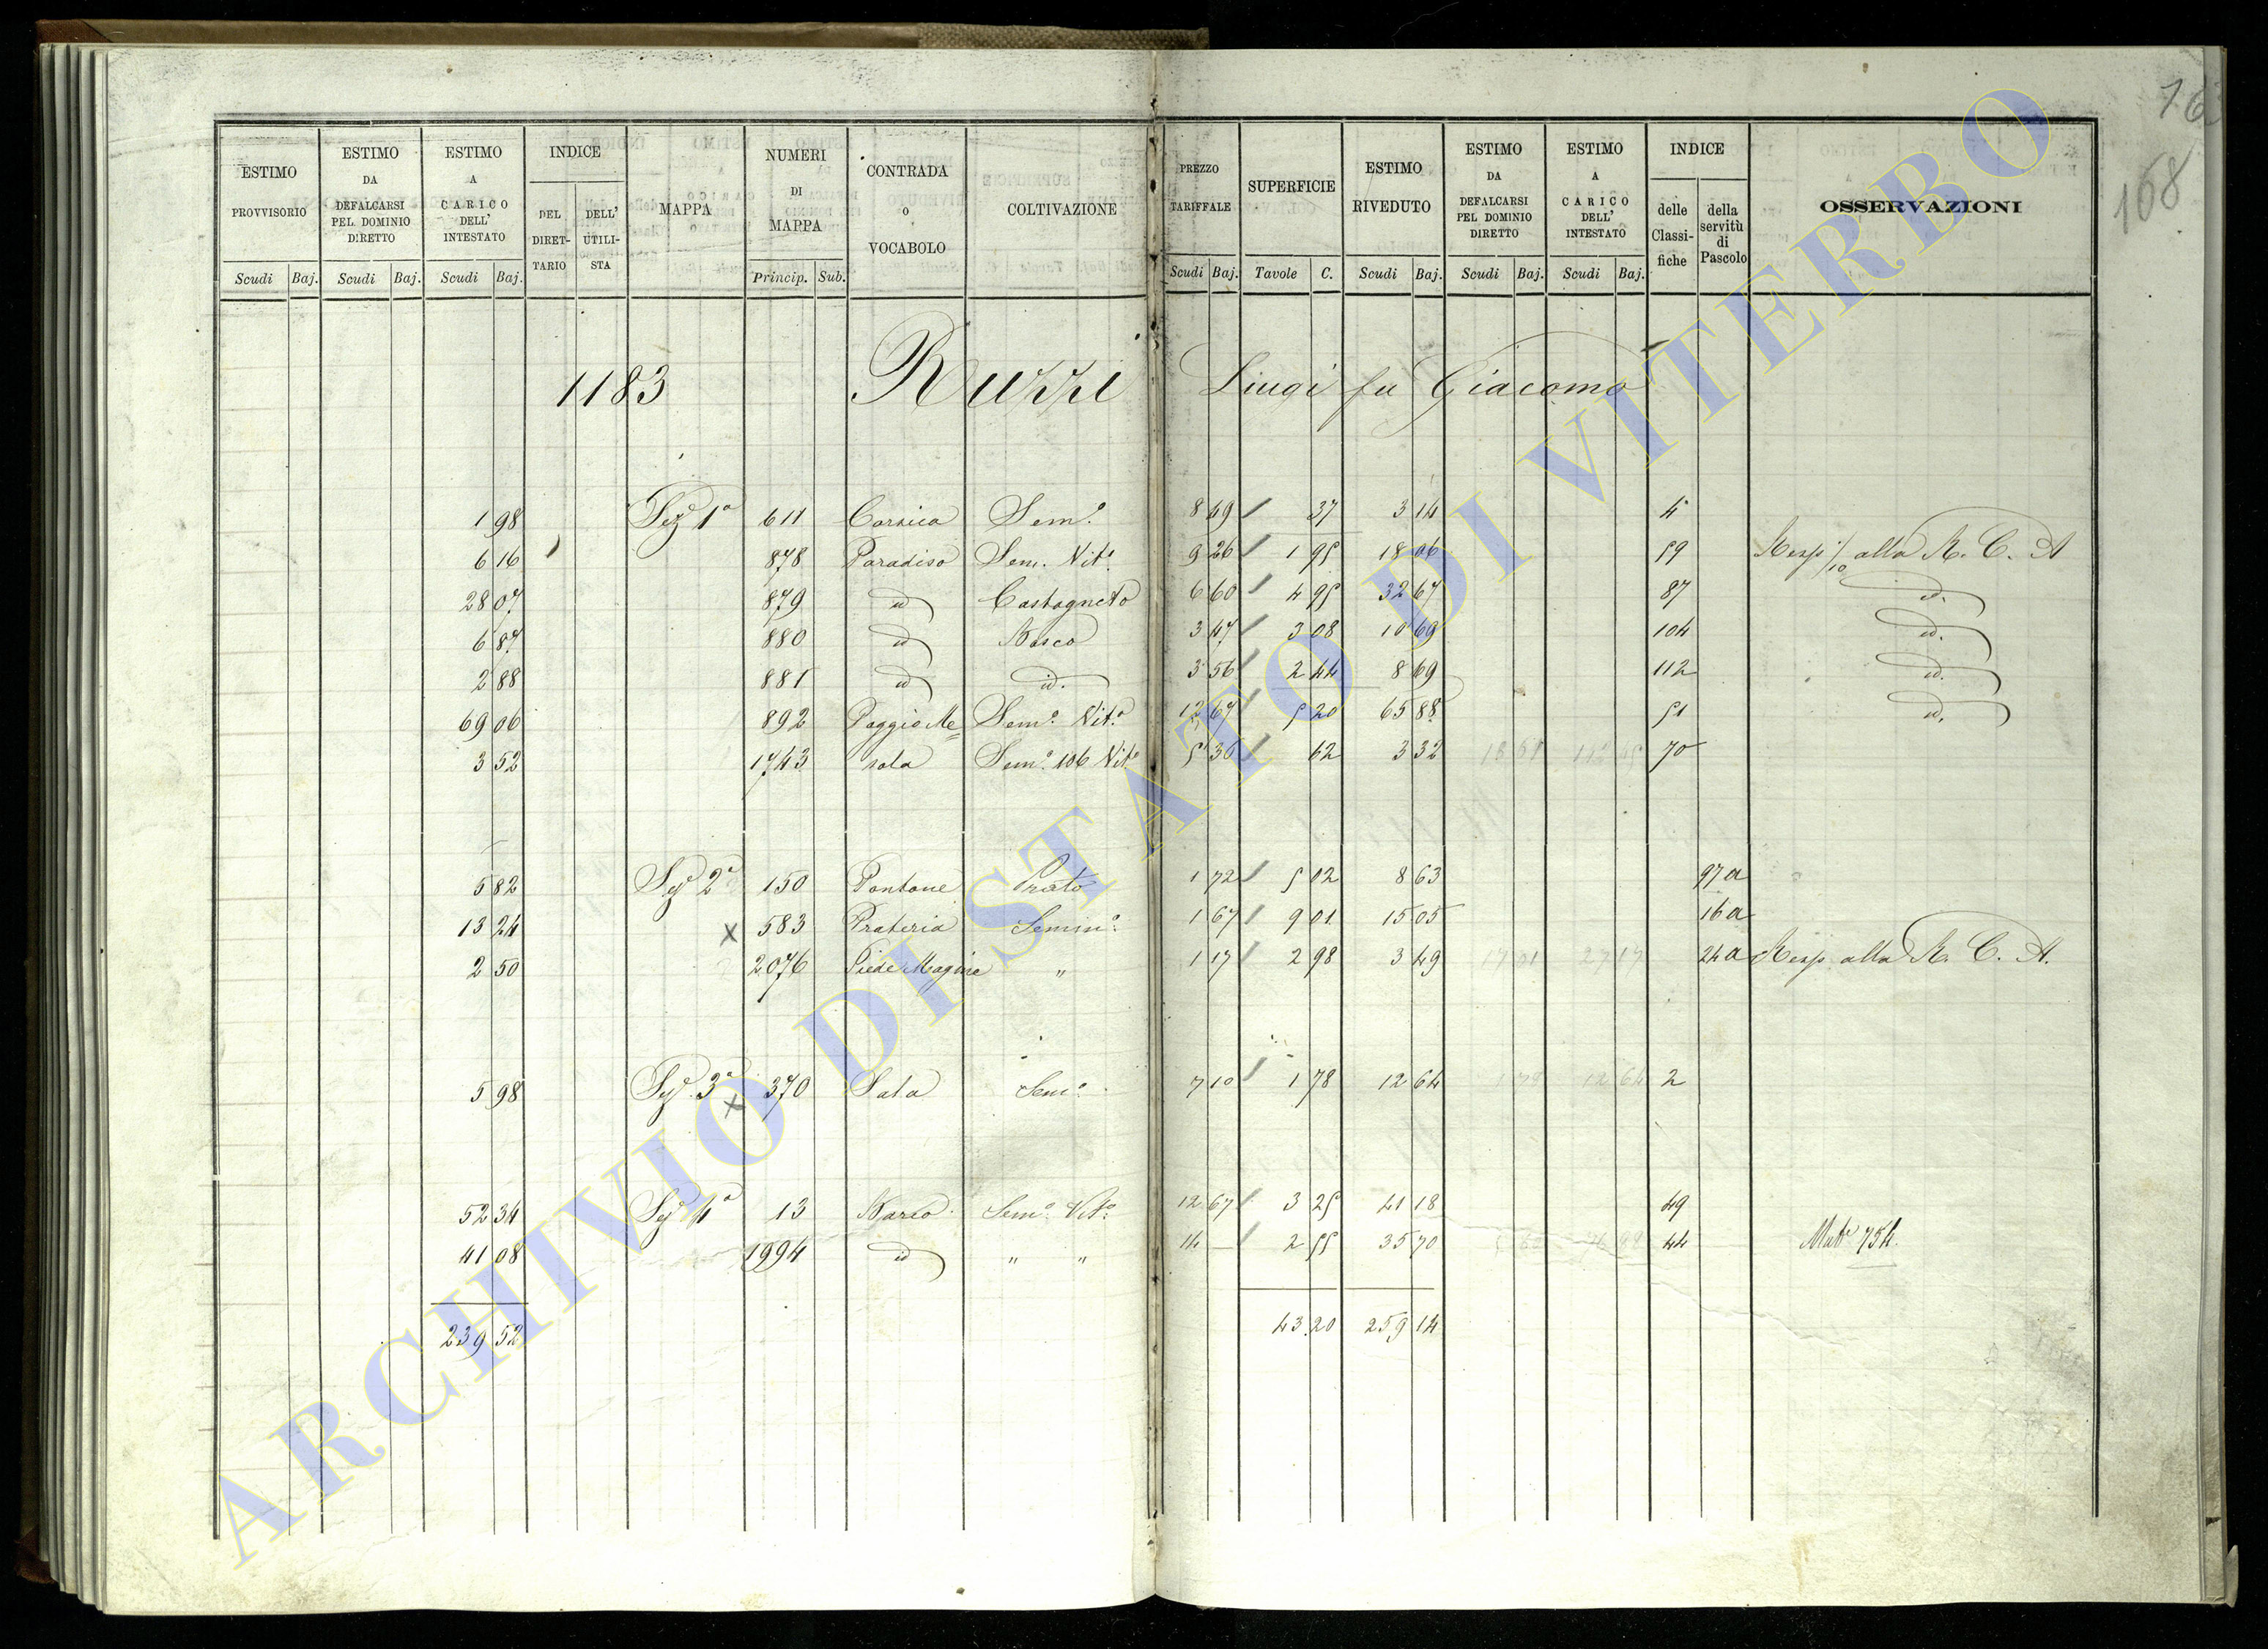 168
ESTIMO PROVVISORIO Scudi Baj. | ESTIMO DA DEFALCARSI PEL DOMINIO DIRETTO Scudi Baj. | ESTIMO A CARICO DELL' INTESTATO Scudi Baj. | INDICE DEL DIRETTARIO DELL' UTILISTA | MAPPA | NUMERI DI MAPPA Princip. Sub. | CONTRADA O VOCABOLO | COLTIVAZIONE | PREZZO TARIFFALE Scudi Baj. | SUPERFICIE Tavole C. | ESTIMO RIVEDUTO Scudi Baj. | ESTIMO DA DEFALCARSI PEL DOMINIO DIRETTO Scudi Baj. | ESTIMO A CARICO DELL' INTESTATO Scudi Baj. | INDICE delle Classifiche della servitù di Pascolo | OSSERVAZIONI
1183 Ruzzi Liugi fu Giacomo
1 98 Sezº 1ª 611 Corsica Semº. 8 49 37 3 14 4
6 16 878 Paradiso Sem. Vitº. 9 26 1 95 18 06 59 Resp 1/10 alla R. C. A
28 07 879 id Castagneto 6 60 4 95 32 67 87 id.
6 87 880 id Bosco 3 47 3 08 10 69 104 id.
2 88 881 id id. 3 56 2 44 8 69 112 id.
69 06 892 Poggio Me Semº. Vitº. 12 67 5 20 65 88 51 id.
3 52 1743 sala Semº. 106 Vitº 5 36 62 3 32 18 61 142 45 70
5 82 Sezº 2ª 150 Pontone Prato 1 72 5 02 8 63 97a
13 24 x 583 Prateria Seminº. 1 67 9 01 15 05 16a
2 50 2076 Piede Magine " 1 17 2 98 3 49 17 01 27 17 24a Resp. alla R. C. A.
5 98 Sezº. 3ª x 370 Sala Semº. 7 10 1 78 12 64 1 78 12 64 2
52 34 Sezº 4ª 13 Barco Semº. Vitº. 12 67 3 25 41 18 49
41 08 1994 id " " 14 — 2 55 35 70 44 Matº 754.
239 52 43.20 259 14
ARCHIVIO DI STATO DI VITERBO